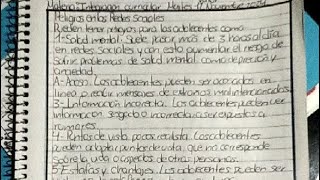 Peligros en las Redes Sociales
Pueden tener peligros para los adolecentes como
1-Salud mental: Suele pasar mas de 3 horas al día
en redes Sociales y con esto aumentar el riesgo de
Sufrir problemas de Salud mental como depresión y
ansiedad.
Acoso: Los adolecentes pueden ser acosados en
linea y recibir mensajes de extraños mal intencionados
3-Información incorrecta: Los adolecentes pueden ver
información sesgada o incorrecta o ser expuestos a
rumores.
4-Puntos de vista pocos realista: Los adolecentes
pueden adoptar puntos de vista, que no corresponde
Sobre la vida o aspectos de otras personas.
5-Estafas y Chantajes: Los adolecentes pueden ser